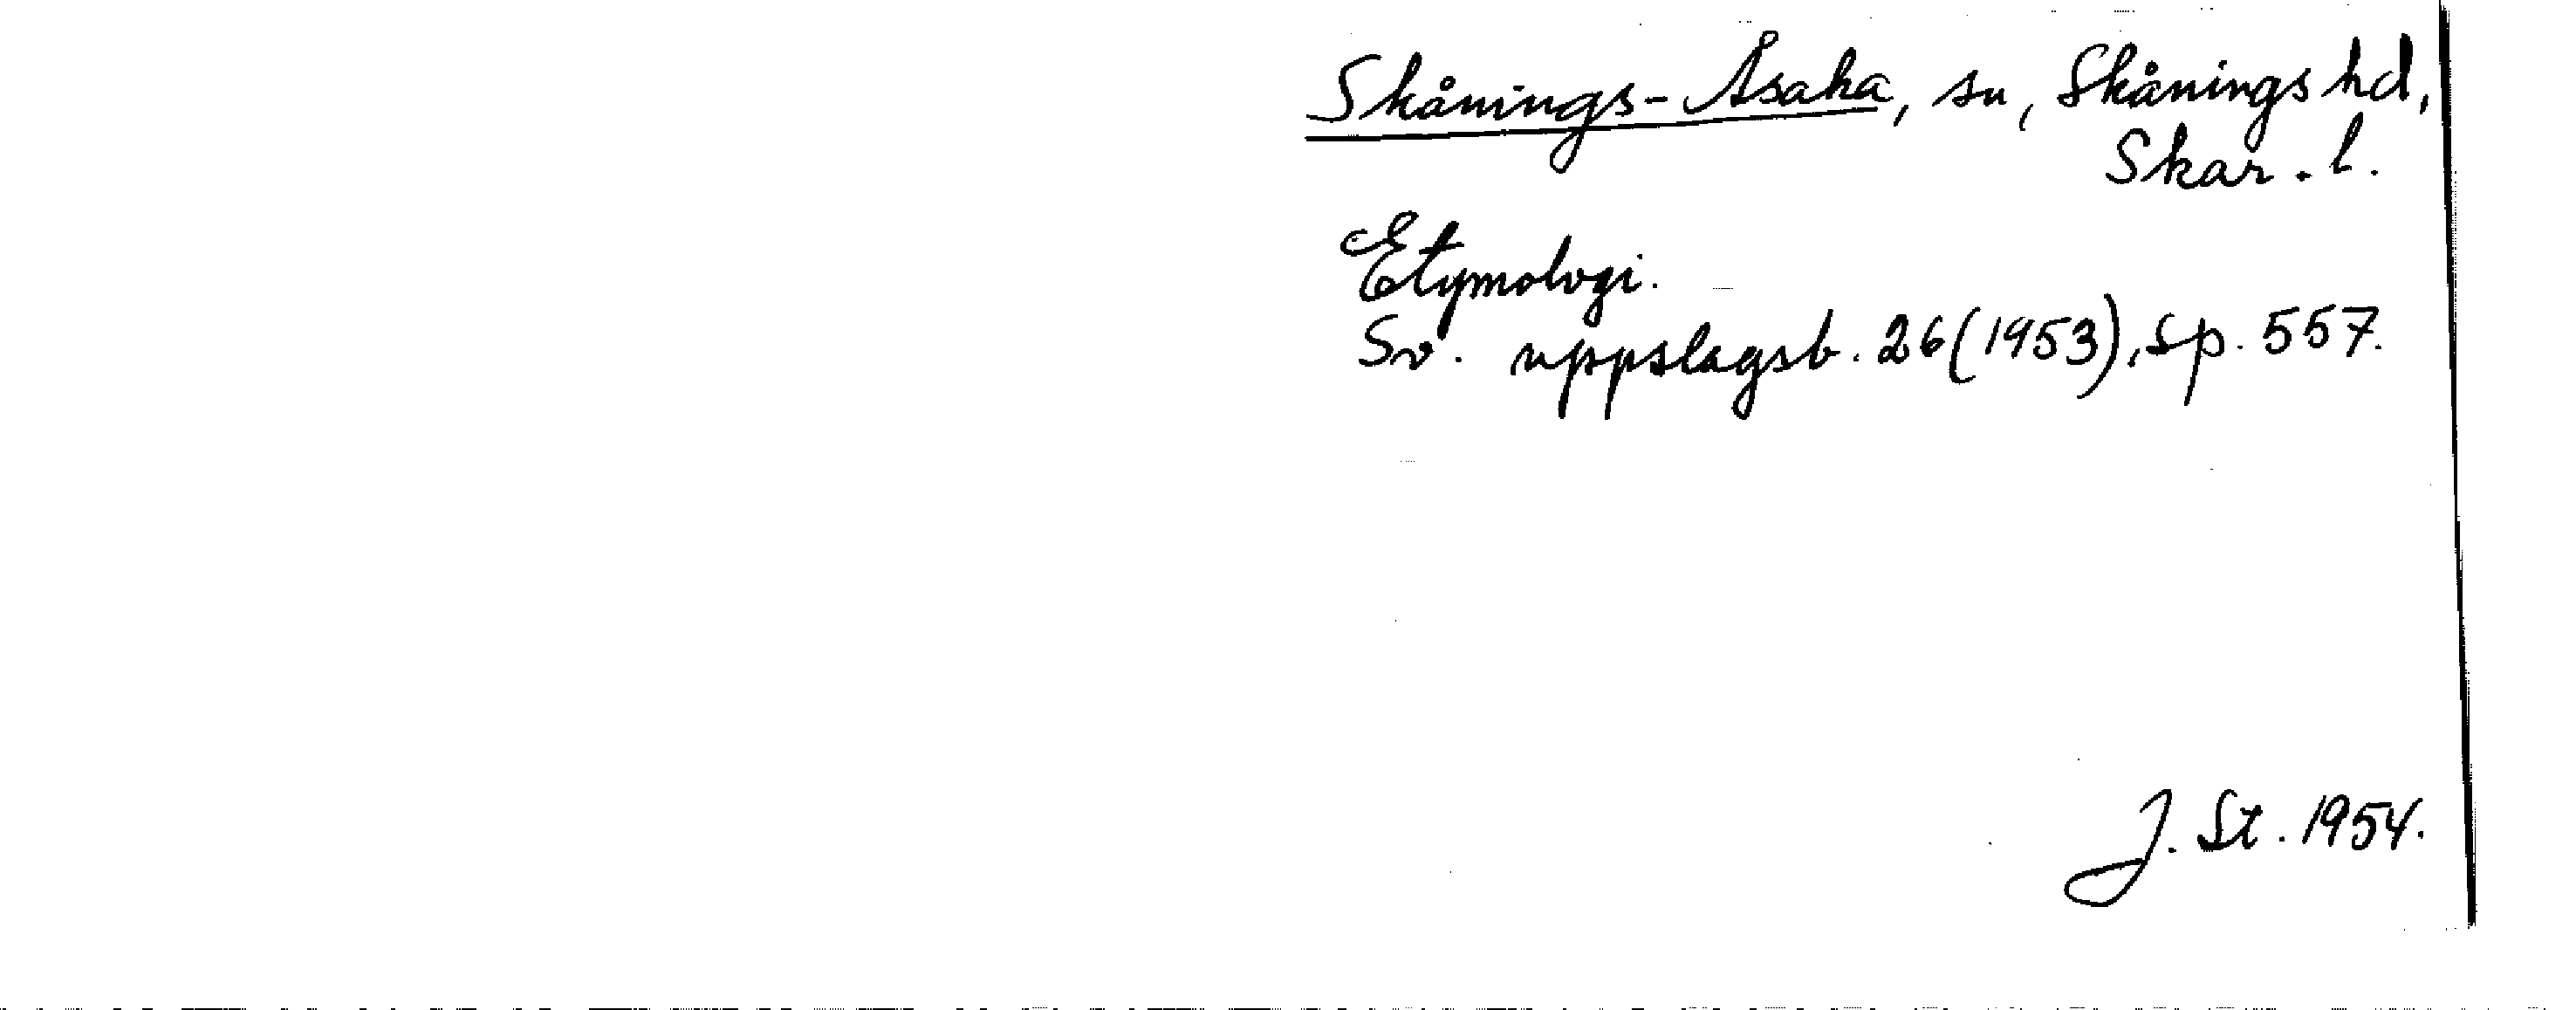 Skånings-Åsaka, sn, Skånings hd,
Skar. l.
Etymologi.
Sv. uppslagsb. 26(1953), sp. 557.
J. St. 1954.